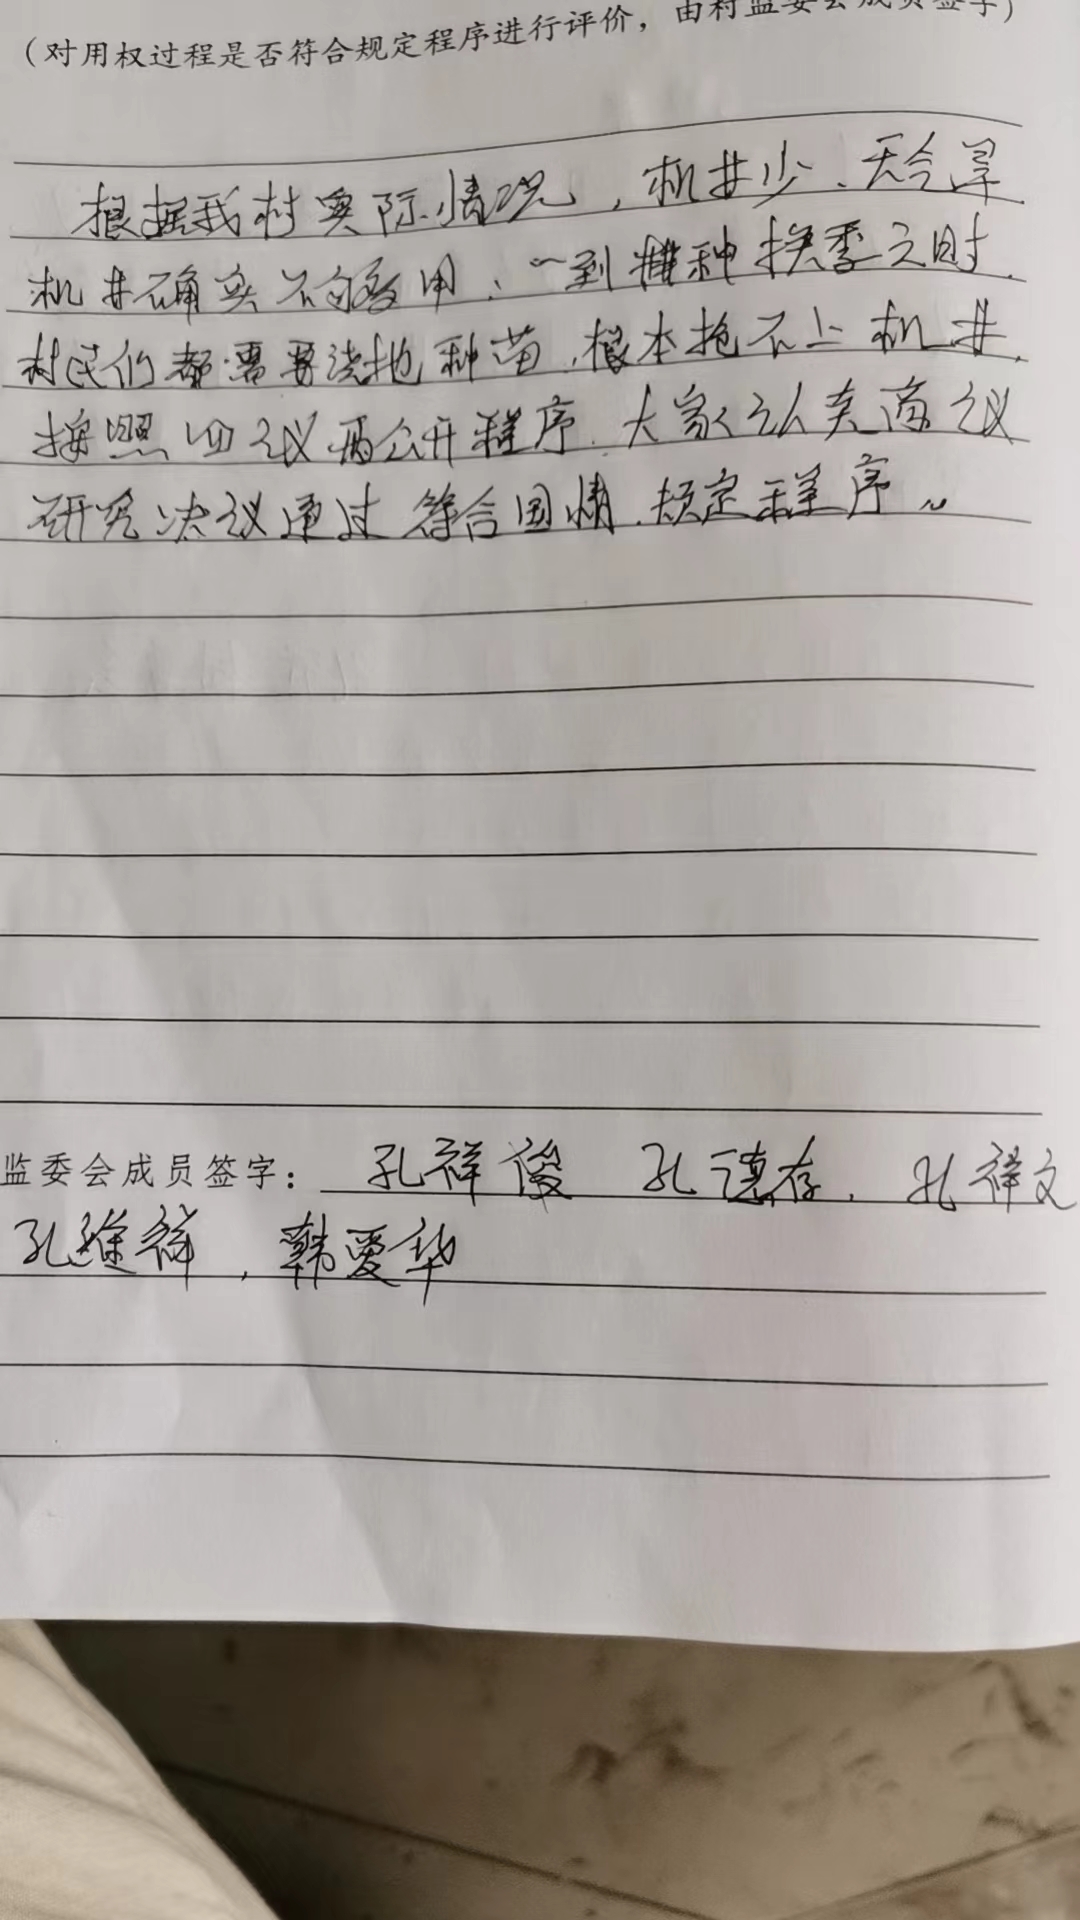 （对用权过程是否符合规定程序进行评价，由村监委会成员签字）
根据我村实际情况，机井少、天气旱
机井确实不够用、一到耕种换季之时.
村民们都需要浇地种苗,根本抢不上机井.
按照四议两公开程序.大家认真商议
研究决议通过符合国情.规定程序。
监委会成员签字：孔祥俊 孔德存. 孔祥文
孔维祥，韩爱华